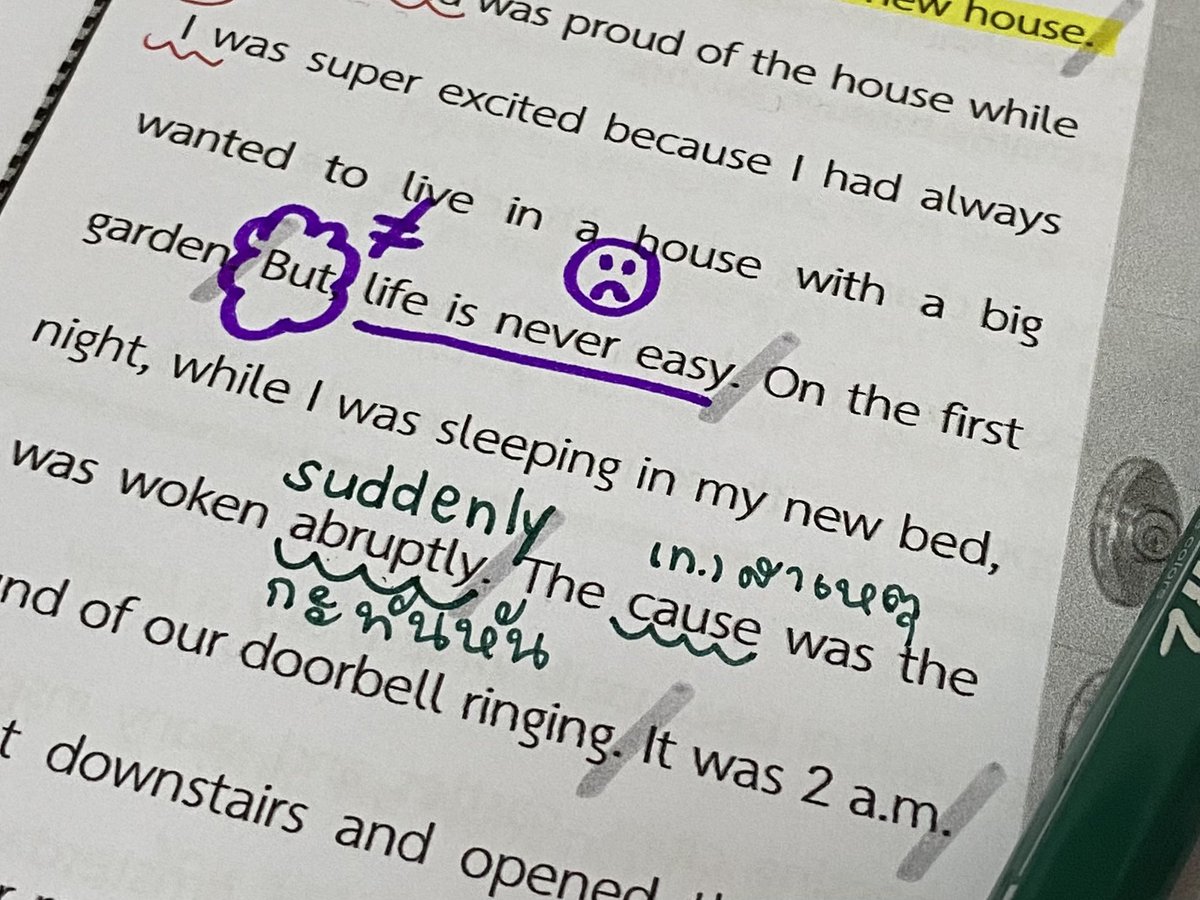 new house.
was proud of the house while
I was super excited because I had always
wanted to live in a house with a big
≠
garden. But, life is never easy. On the first
night, while I was sleeping in my new bed,
suddenly
was woken abruptly. The cause was the
(n.) สาเหตุ
กะทันหัน
of our doorbell ringing. It was 2 a.m.
downstairs and opened